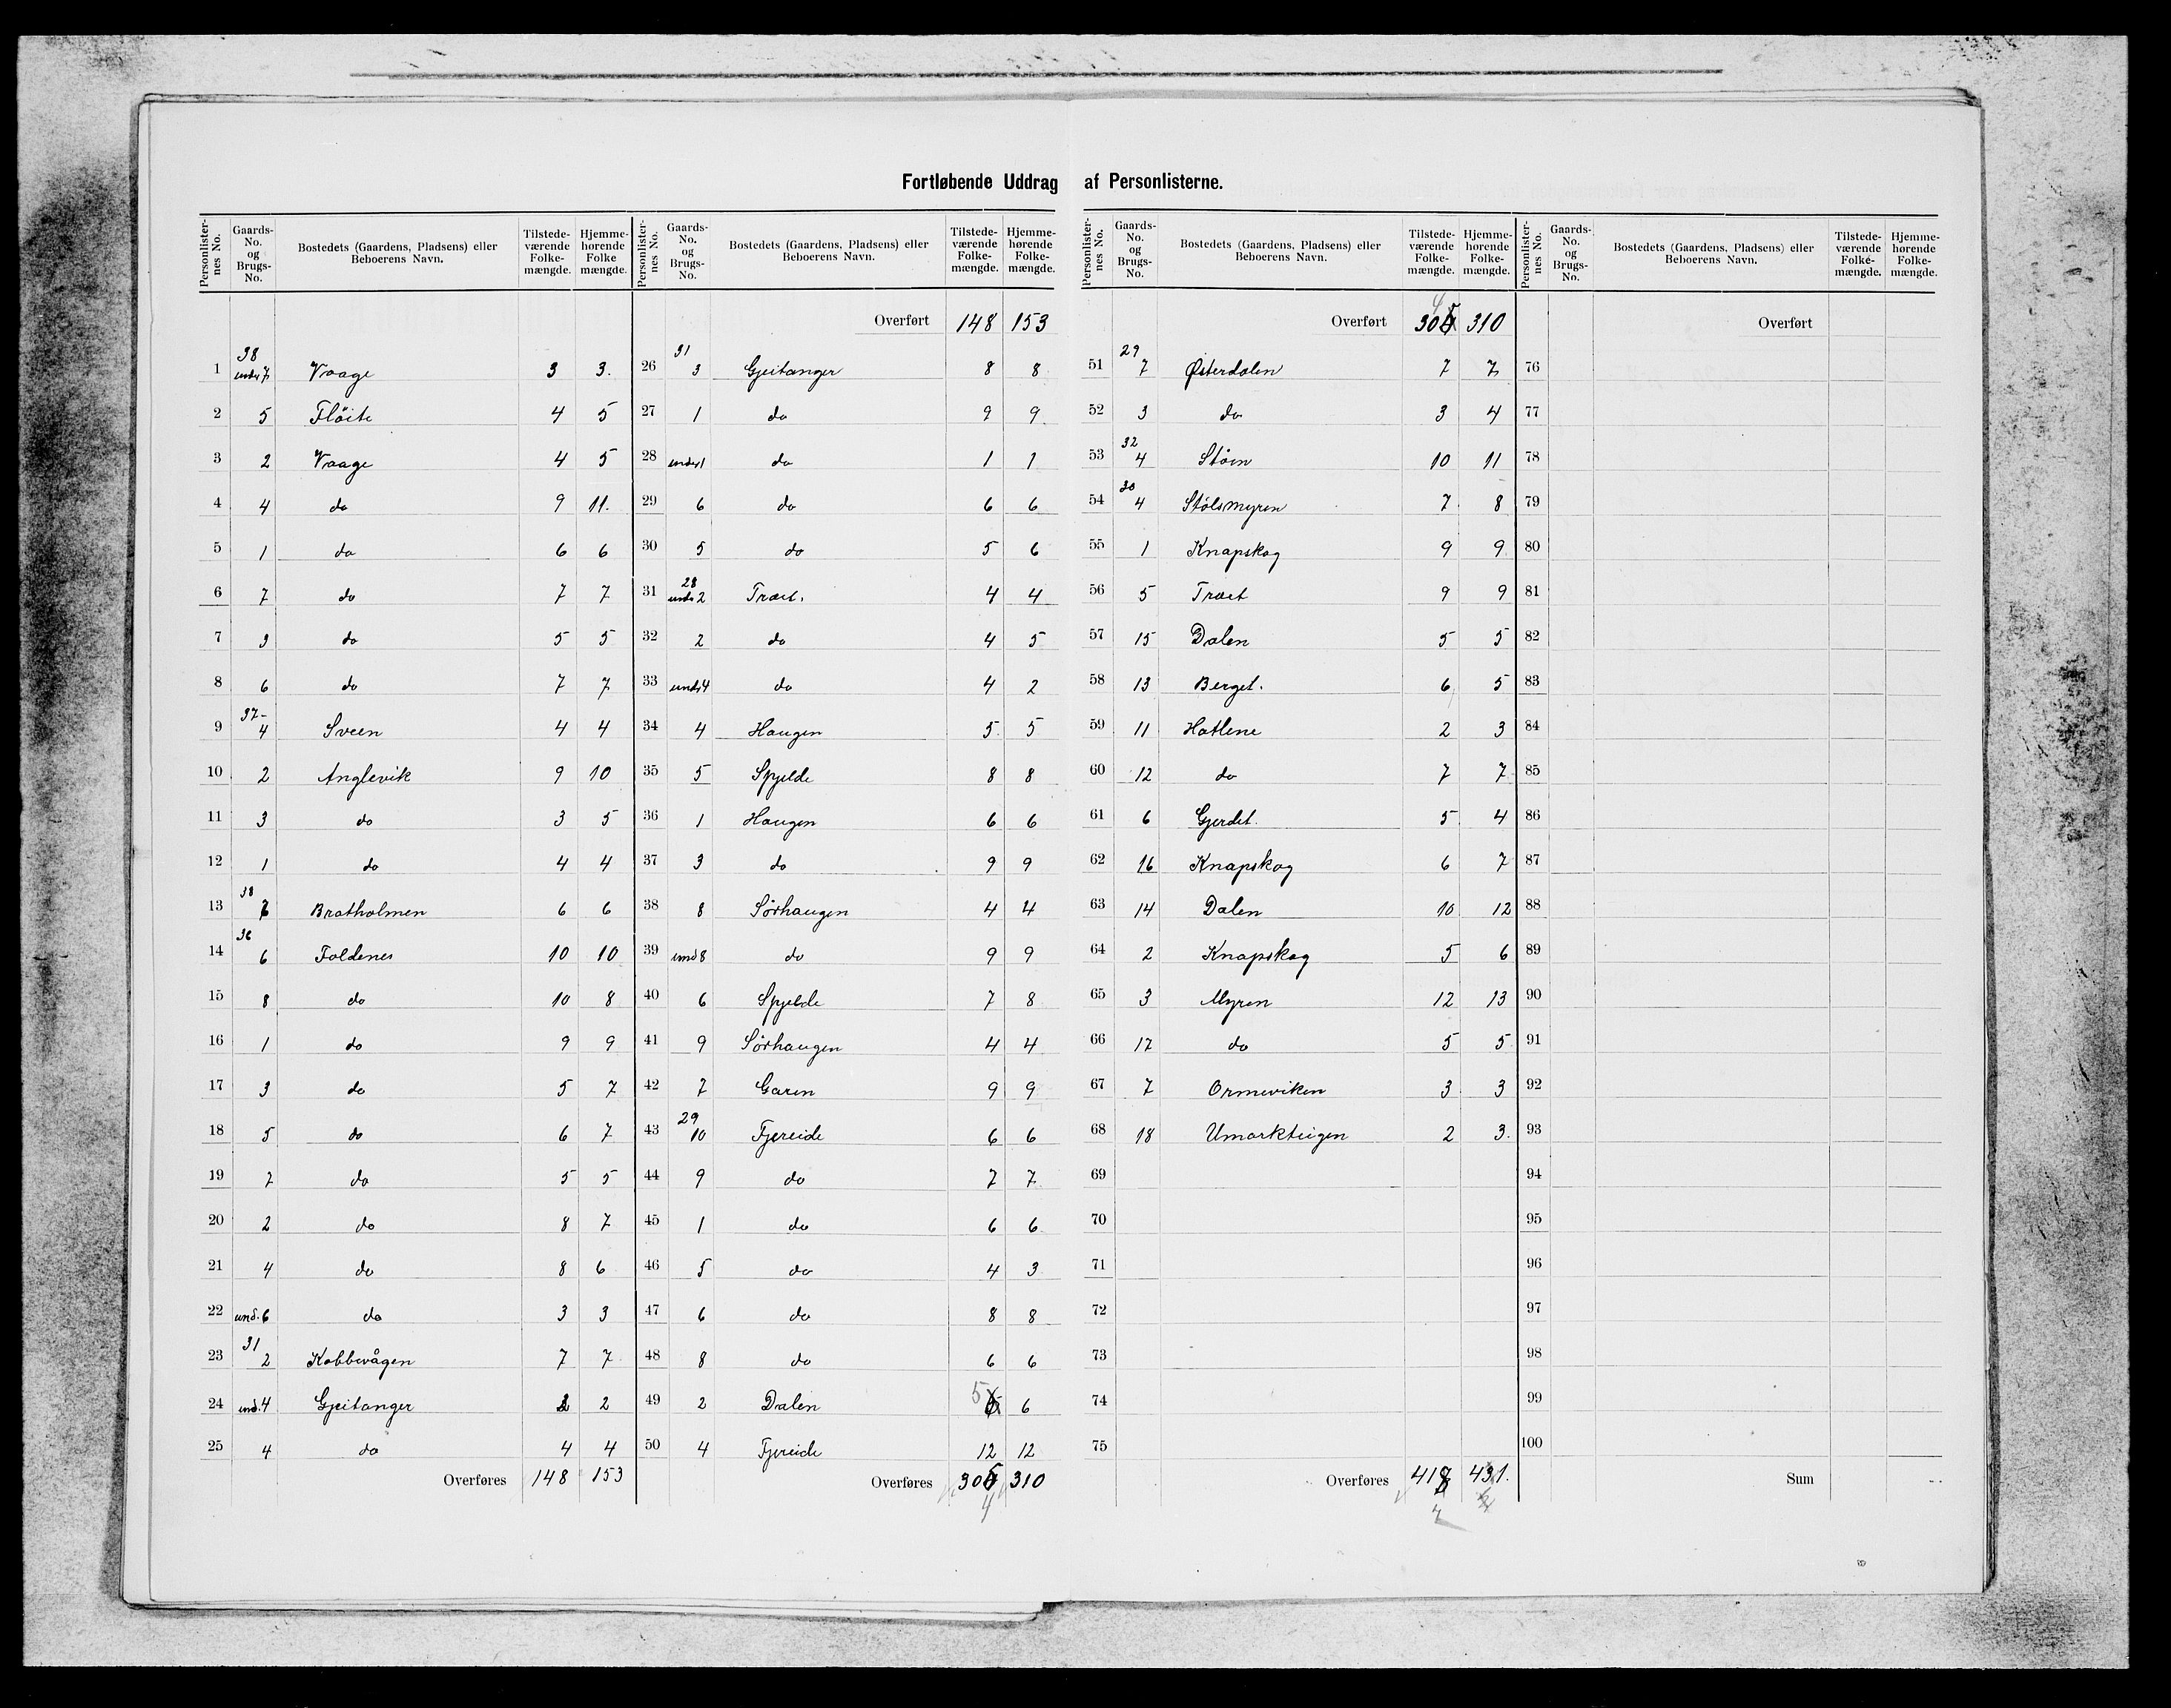 Fortløbende Uddrag af Personlisterne.
Personlister-nes No. Gaards-No. og Brugs-No. Bostedets (Gaardens, Pladsens) eller Beboerens Navn. Tilstede-værende Folke-mængde. Hjemme-hørende Folke mængde.
1 38 under 7 Vaage 3 3.
2 5 Flöite 4 5
3 2 Vaage 4 5
4 4 do 9 11.
5 1 do 6 6
6 7 do 7 7
7 3 do 5 5
8 6 do 7 7
9 37- 4 Sveen 4 4
10 2 Anglevik 9 10
11 3 do 3 5
12 1 do 4 4
13 38 Bratholmen 6 6
14 36 6 Foldenes 10 10
15 8 do 10 8
16 1 do 9 9
17 3 do 5 7
18 5 do 6 7
19 7 do 5 5
20 2 do 8 7
21 4 do 8 6
22 und. 6 do 3 3
23 31 2 Kobbevågen 7 7
24 und. 4 Gjeitanger 2 2
25 4 do 4 4
Overføres 148 153
Personlister-nes No. Gaards-No. og Brugs-No. Bostedets (Gaardens, Pladsens) eller Beboerens Navn. Tilstede-værende Folke-mængde. Hjemme-hørende Folke-mængde.
Overført 148 153
26 31 3 Gjeitanger 8 8
27 1 do 9 9
28 under 1 do 1 1
29 6 do 6 6
30 5 do 5 6
31 28 under 2 Træt. 4 4
32 2 do 4 5
33 und. 4 do 4 2
34 4 Haugen 5 5
35 5 Spjelde 8 8
36 1 Haugen 6 6
37 3 do 9 9
38 8 Sørhaugen 4 4
39 und 8 do 9 9
40 6 Spjelde 7 8
41 9 Sørhaugen 4 4
42 7 Garen 9 9
43 29 10 Fjereide 6 6
44 9 do 7 7
45 1 do 6 6
46 5 do 4 3
47 6 do 8 8
48 8 do 6 6
49 2 Dalen 5 6
50 4 Fjereide 12 12
Overføres 305 310
4
Personlister-nes No. Gaards-No. og Brugs-No. Bostedets (Gaardens, Pladsens) eller Beboerens Navn. Tilstede-værende Folke-mængde. Hjemme-hørende Folke-mængde.
4
Overført 305 310
51 29 7 Østerdalen 7 7
52 3 do 3 4
53 32 4 Støen 10 11
54 30 4 Stølsmyren 7 8
55 1 Knapskog 9 9
56 5 Træet 9 9
57 15 Dalen 5 5
58 13 Berget. 6 5
59 11 Hatlene 2 3
60 12 do 7 7
61 6 Gjerdet. 5 4
62 16 Knapskog 6 7
63 14 Dalen 10 12
64 2 Knapskog 5 6
65 3 Myren 12 13
66 17 do 5 5
67 7 Ormeviken 3 3
68 18 Umarkteigen 2 3.
69
70
71
72
73
74
75
Overføres 418 431.
7
Personlister-nes No. Gaards-No. og Brugs-No. Bostedets (Gaardens, Pladsens) eller Beboerens Navn. Tilstede-værende Folke-mængde. Hjemme-hørende Folke-mængde.
Overført
76
77
78
79
80
81
82
83
84
85
86
87
88
89
90
91
92
93
94
95
96
97
98
99
100
Sum